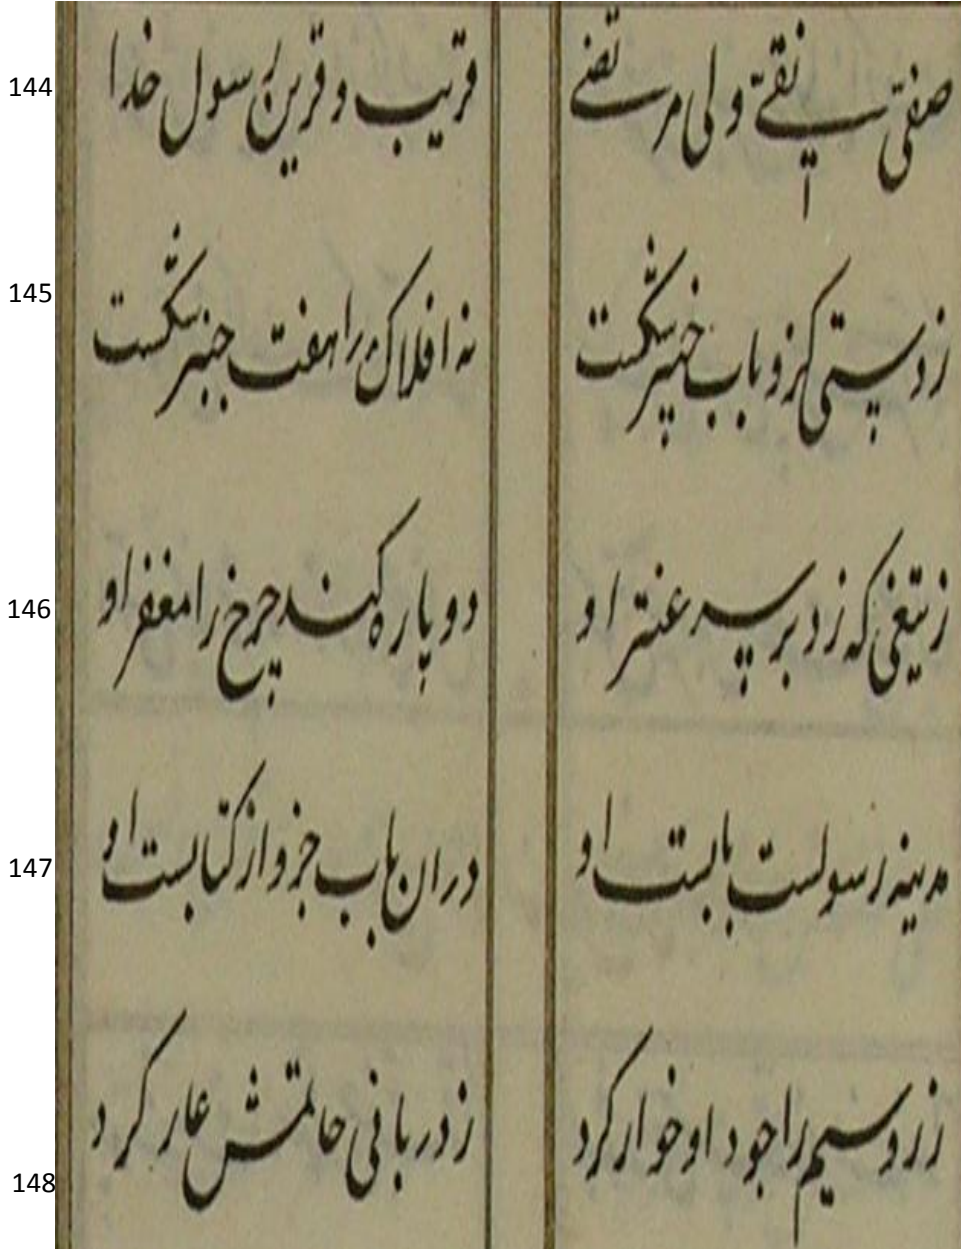 144
صفی نقی ولی مرتضی
قریب و قرین رسول خدا
145
ز دستی کزو باب خیبر شکست
نه افلاک را هفت چنبر شکست
146
ز تیغی که زد بر سر عنتر او
دو پاره کند چرخ را مغفر او
147
مدینه رسولست بابست او
در ان باب جزو از کتابست او
148
زر و سیم را جود او خوار کرد
ز دربانی حاتمش عار کرد